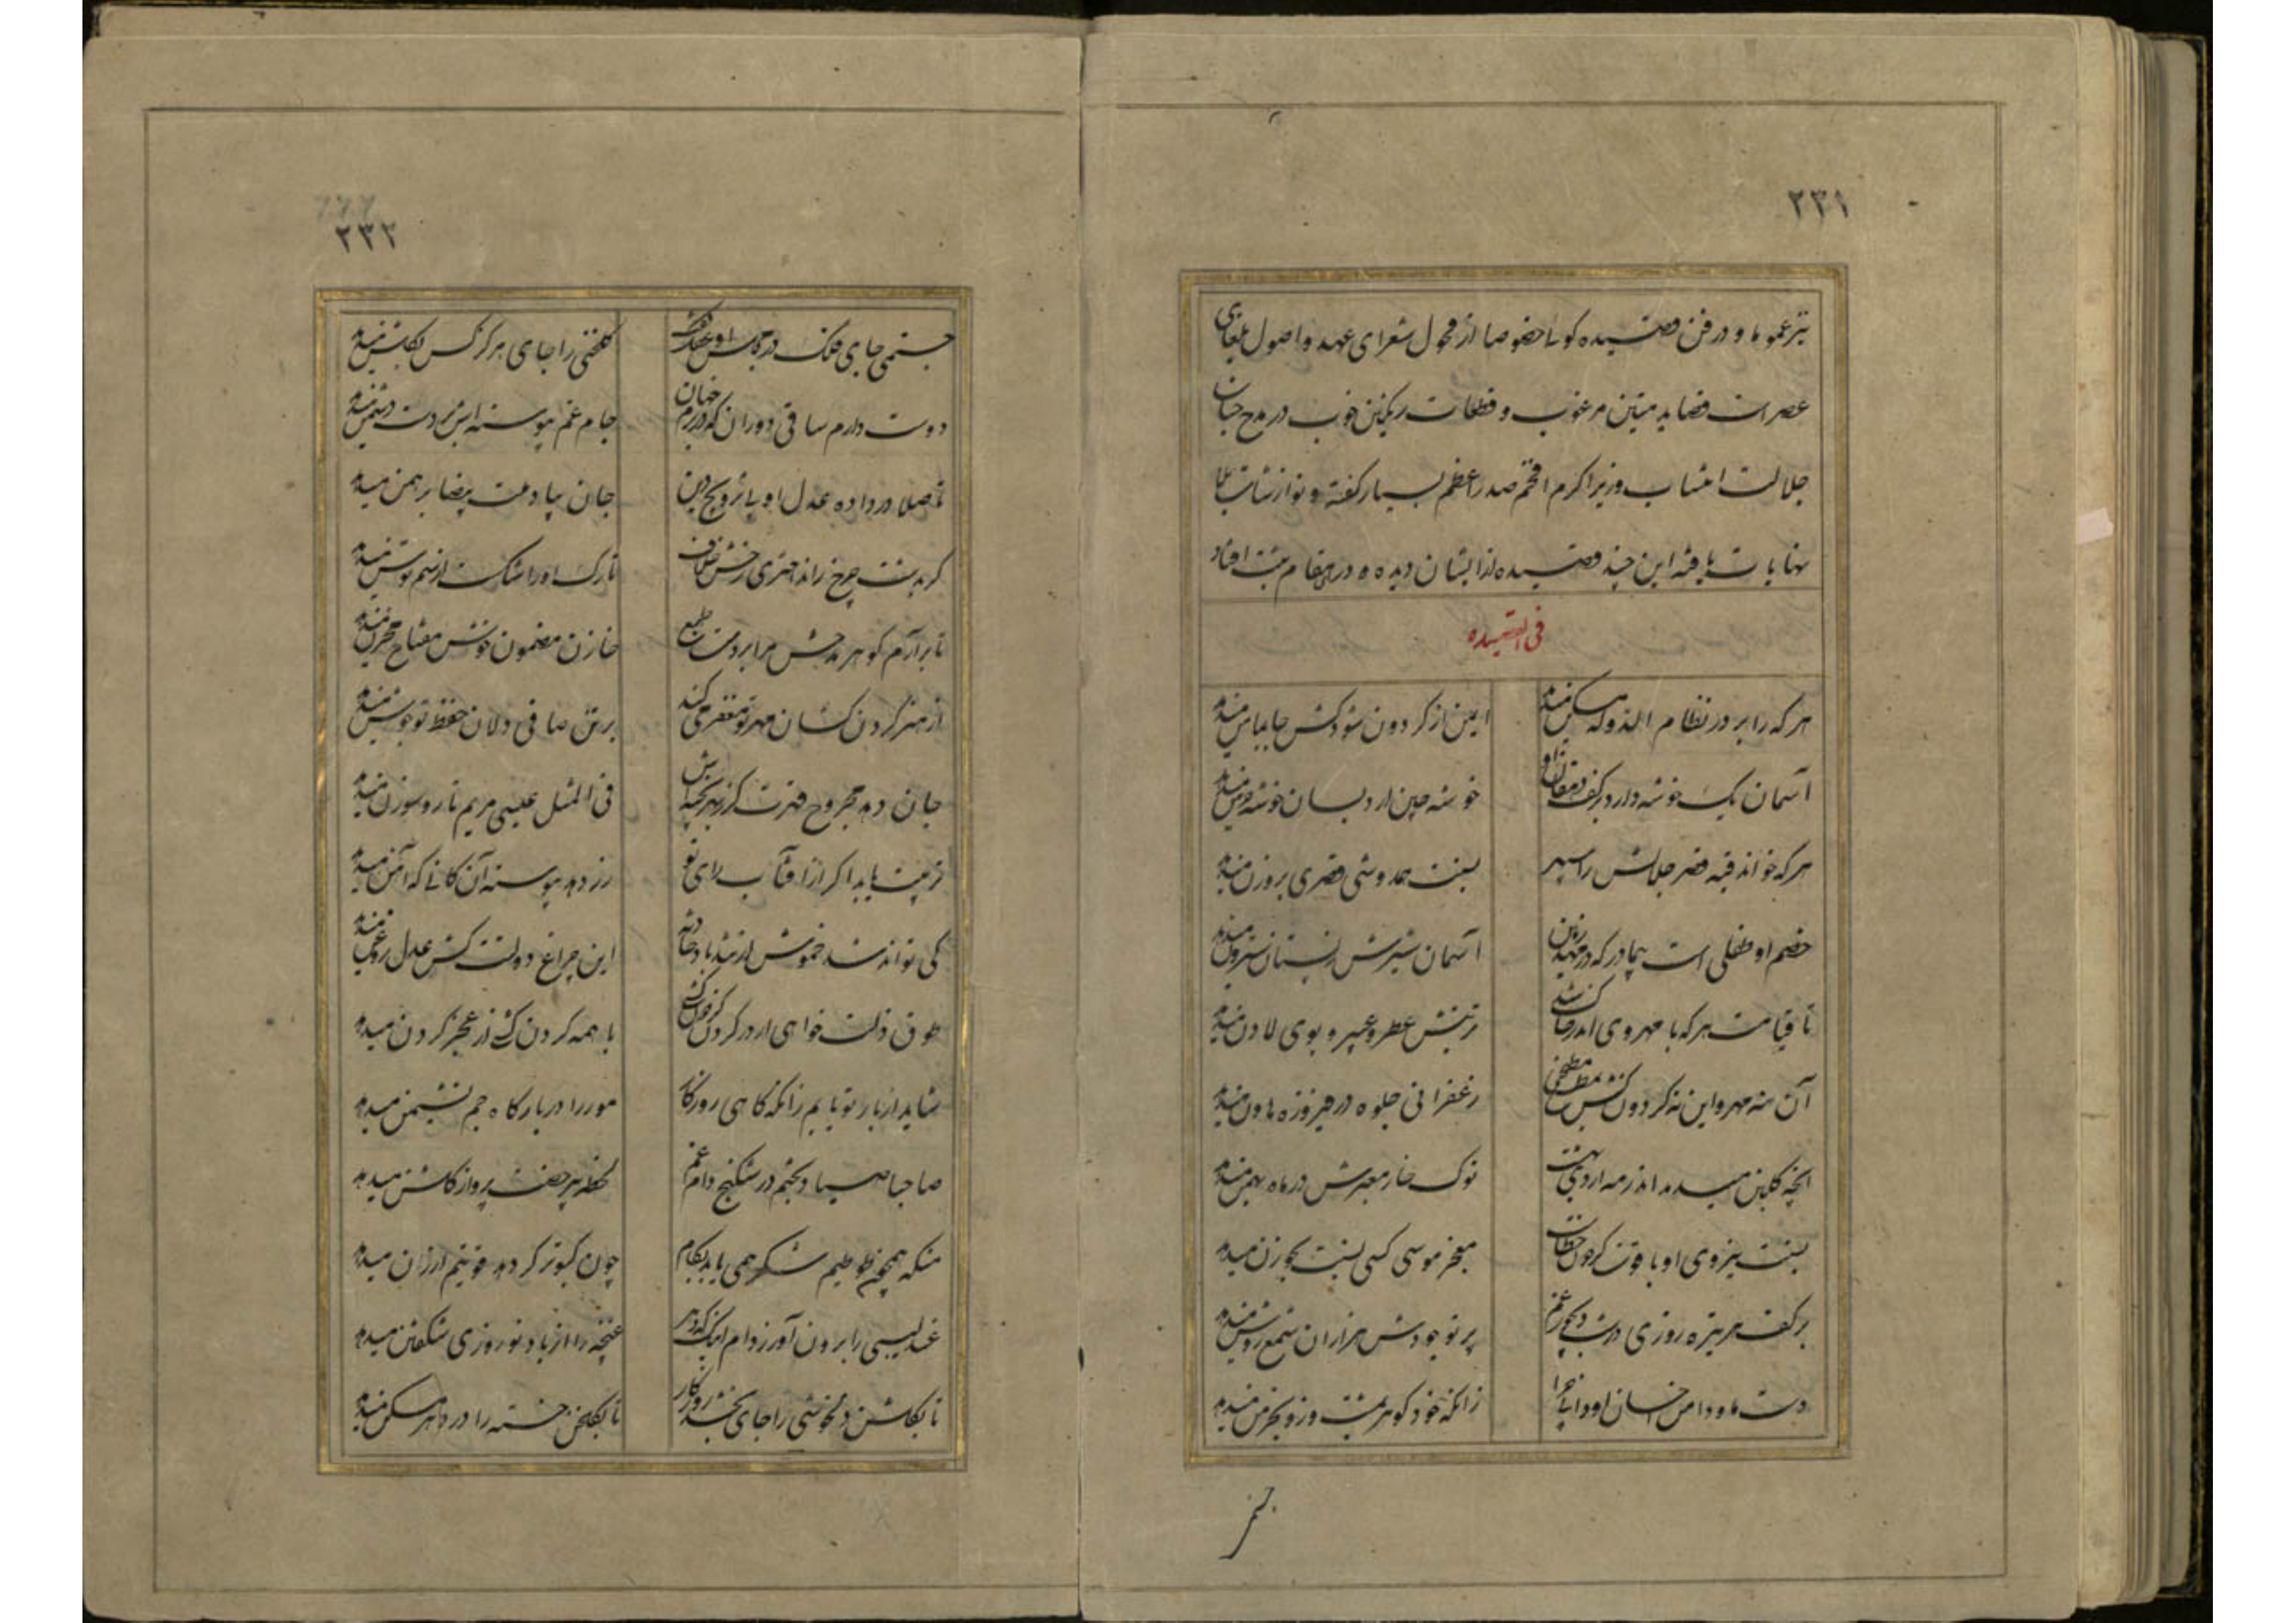 ۲۳۱
نیز عموما و در فن قصیده گوئی خصوصا از فحول شعرای عهد و اصول بلغای
عصر است قصاید متین مرغوب و قطعات رنگین خوب در مدح جناب
جلالت انتساب وزیر اکرم افخم صدر اعظم بسیار گفته و نوازشات بلا
نهایات یافته این چند قصیده از ایشان دیده و در این مقام ثبت افتاد
فی القصیده
هر که را بر در نظام الدوله مسکن میدهد
ایمن از گردون شود کش جا بمأمن میدهد
آسمان یک خوشه دارد بر کف دهقان او
خوشه چین را در بسان خوشه خرمن میدهد
هر که خواند قبه قصر جلالش را سپهر
نسبت همدوشی قصری بروزن میدهد
خصم او طفلی است بیمادر که در مهد زمین
آسمان شیرش ز پستان سترون میدهد
تا قیامت هر که با مهر وی اندر خاک شد
تربتش عطر و عبیر و بوی لادن میدهد
آن نه مهر و این نه گردون کش مطبخی
زعفرانی جلوه در فیروزه هاون میدهد
آنچه گلبن میدهد اندر مه اردیبهشت
نوک خار معبرش در ماه بهمن میدهد
نسبت نیروی او با قوت گردون خطاست
معجز موسی کسی نسبت بجوزن میدهد
بر کف هر تیره روزی در شب دیجور غم
پرتو جودش هزاران شمع روشن میدهد
دست ما و دامن احسان او دایم چرا
زانکه خود گوهر بمشت و زر بخرمن میدهد
خصم
۲۳۲
خصمی جای فلک در
گلخنی را جای هرگز کس بگلشن میدهد
دوست دارم ساقی دوران که در بزم جهان
جام غم پیوسته اش بر دست دشمن میدهد
تا صلا در داده عدل او پی ترویج دین
جان بپاداش برهمن میدهد
گر بدست چرخ راند اختری رخش خلاف
تارک او را شکست از سم توسن میدهد
تا برآرم گوهر مدحش مرا بر دست طبع
خازن مضمون خویش مفتاح مخزن میدهد
از هنر گردن کشان مهر تو مغفر می کند
بر تن صافی دلان حفظ تو جوشن میدهد
جان دهد مجروح قهرت گر بهر بخیه اش
فی المثل عیسی مریم تار و سوزن میدهد
تربیت یابد اگر از آفتاب رای تو
زر دهد پیوسته آن کانی که آهن میدهد
کی تواند شد خموش از تندباد حادثه
این چراغ دولتت کش عدل روغن میدهد
طوق ذلت خواهی ار در گردن گردنکشی
با همه گردن کشی از عجز گردن میدهد
شاید ار بار تو یابم زانکه گاهی روزگار
مور را در بارگاه جم نشیمن میدهد
صاحبا صیاد بختم در شکنج دام غم
لحظه پر رخصت پرواز گلشن میدهد
منکه همچو طوطیم شکر همی باید بکام
چون کبوتر گر دهد قوتیم ارزن میدهد
عندلیبی را برون آور ز دام اینک که دهر
غنچه را از باد نوروزی شکفتن میدهد
تا بگلشن دلخوشی را جای بخشد روزگار
تا بگلخن خسته را در دهر مسکن میدهد